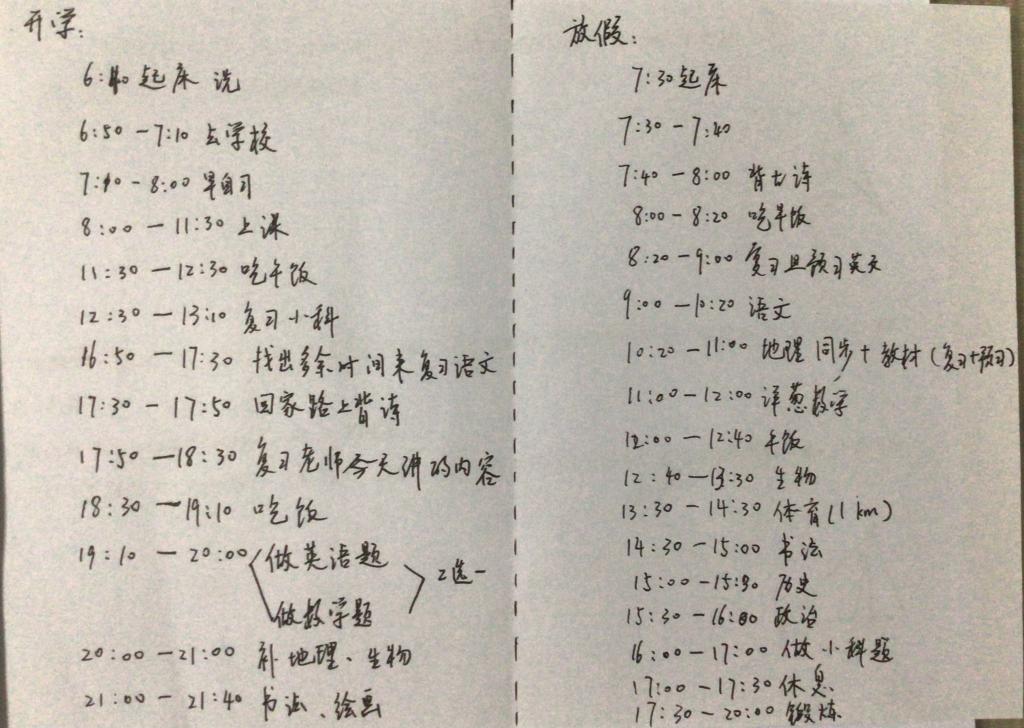 开学:
6:40 起床 洗
6:50 - 7:10 去学校
7:10 - 8:00 早自习
8:00 - 11:30 上课
11:30 - 12:30 吃午饭
12:30 - 13:10 复习小科
16:50 - 17:30 找出多余时间来复习语文
17:30 - 17:50 回家路上背诗
17:50 - 18:30 复习老师今天讲的内容
18:30 - 19:10 吃饭
19:10 - 20:00 做英语题
2选一
做数学题
20:00 - 21:00 补地理、生物
21:00 - 21:40 书法、绘画
放假:
7:30 起床
7:30 - 7:40
7:40 - 8:00 背古诗
8:00 - 8:20 吃早饭
8:20 - 9:00 复习且预习英文
9:00 - 10:20 语文
10:20 - 11:00 地理 同步+教材(复习+预习)
11:00 - 12:00 洋葱数学
12:00 - 12:40 午饭
12:40 - 13:30 生物
13:30 - 14:30 体育(1 km)
14:30 - 15:00 书法
15:00 - 15:30 历史
15:30 - 16:00 政治
16:00 - 17:00 做小科题
17:00 - 17:30 休息
17:30 - 20:00 锻炼